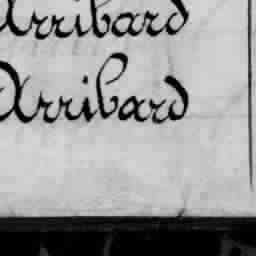 Arribard
Arribard